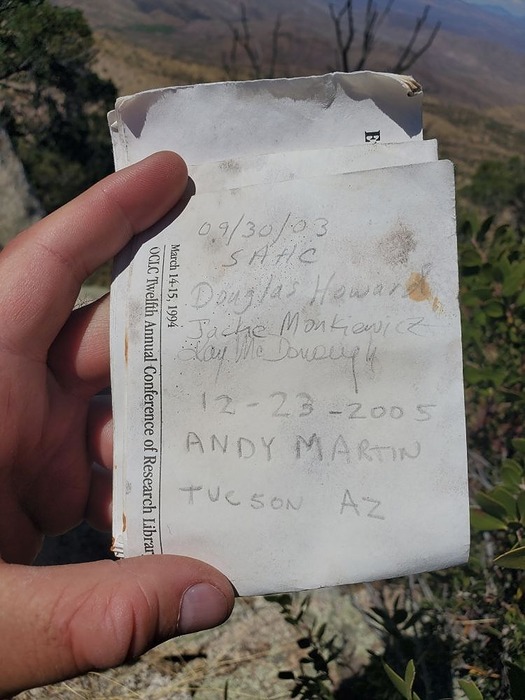 E
09/30/03
SAHC
Douglas Howard
Jackie Monkiewicz
Kay McDonough
12-23-2005
ANDY MARTIN
TUCSON AZ
March 14-15, 1994
OCLC Twelfth Annual Conference of Research Librar